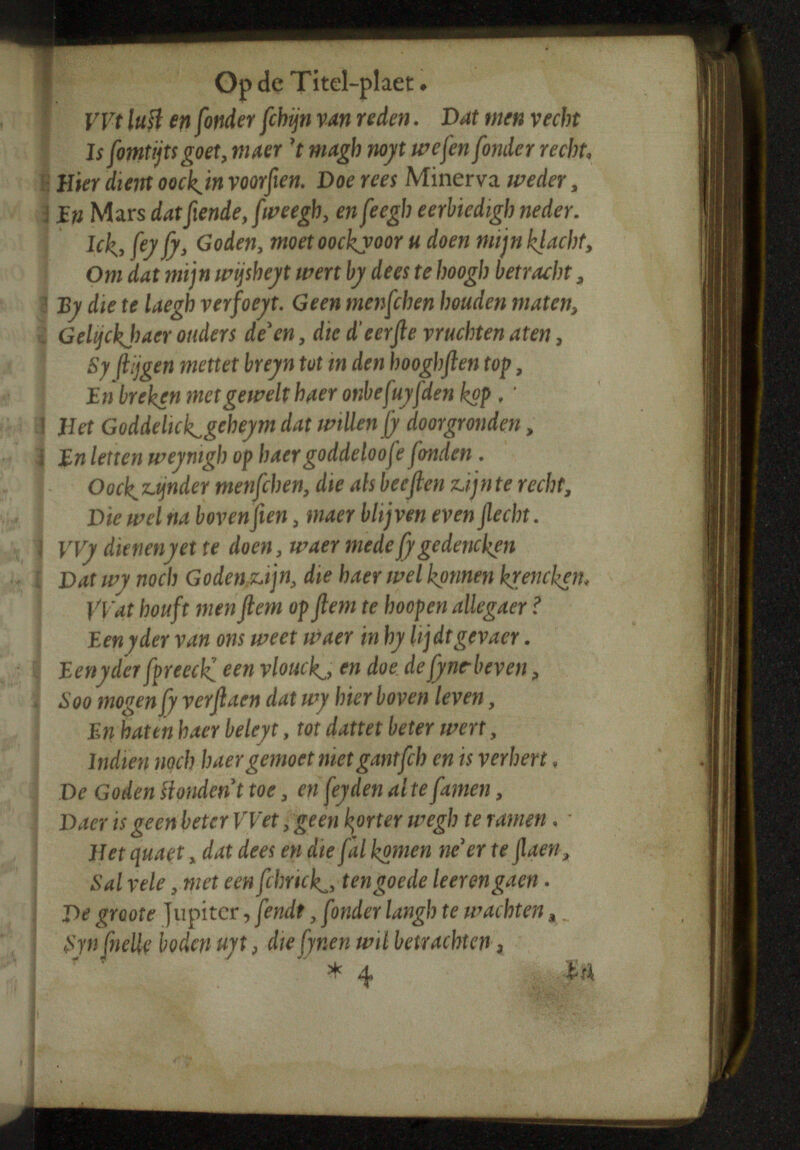 Op de Titel-plaet.
VVt lust en sonder schijn van reden. Dat men vecht
Is somtijts goet, maer 't magh noyt wesen sonder recht,
Hier dient oock in voorsien. Doe rees Minerva weder,
En Mars dat siende, sweegh, en seegh eerbiedigh neder.
Ick, sey sy, Goden, moet oock voor u doen mijn klacht,
Om dat mijn wijsheyt wert by dees te hoogh betracht,
By die te laegh versoeyt. Geen menschen houden maten,
Gelijck haer ouders de'en, die d'eerste vruchten aten,
Sy stijgen mettet breyn tot in den hooghsten top,
En breken met gewelt haer onbesuysden kop.
Het Goddelick geheym dat willen sy doorgronden,
En letten weynigh op haer goddeloose sonden.
Oock zijnder menschen, die als beesten zijn te recht,
Die wel na boven sien, maer blijven even slecht.
VVy dienen yet te doen, waer mede sy gedencken
Dat wy noch Goden zijn, die haer wel konnen krencken.
VVat houft men stem op stem te hoopen allegaer?
Een yder van ons weet waer in hy lijdt gevaer.
Een yder spreeck' een vlouck, en doe de syne beven,
Soo mogen sy verstaen dat wy hier boven leven,
En haten haer beleyt, tot dattet beter wert,
Indien noch haer gemoet niet gantsch en is verhert.
De Goden stonden't toe, en seyden al te samen,
Daer is geen beter VVet, geen korter wegh te ramen.
Het quaet, dat dees en die sal komen ne'er te slaen,
Sal vele, met een schrick, ten goede leeren gaen.
De groote Jupiter, sendt, sonder langh te wachten,
Syn snelle boden uyt, die synen wil betrachten,
* 4 En